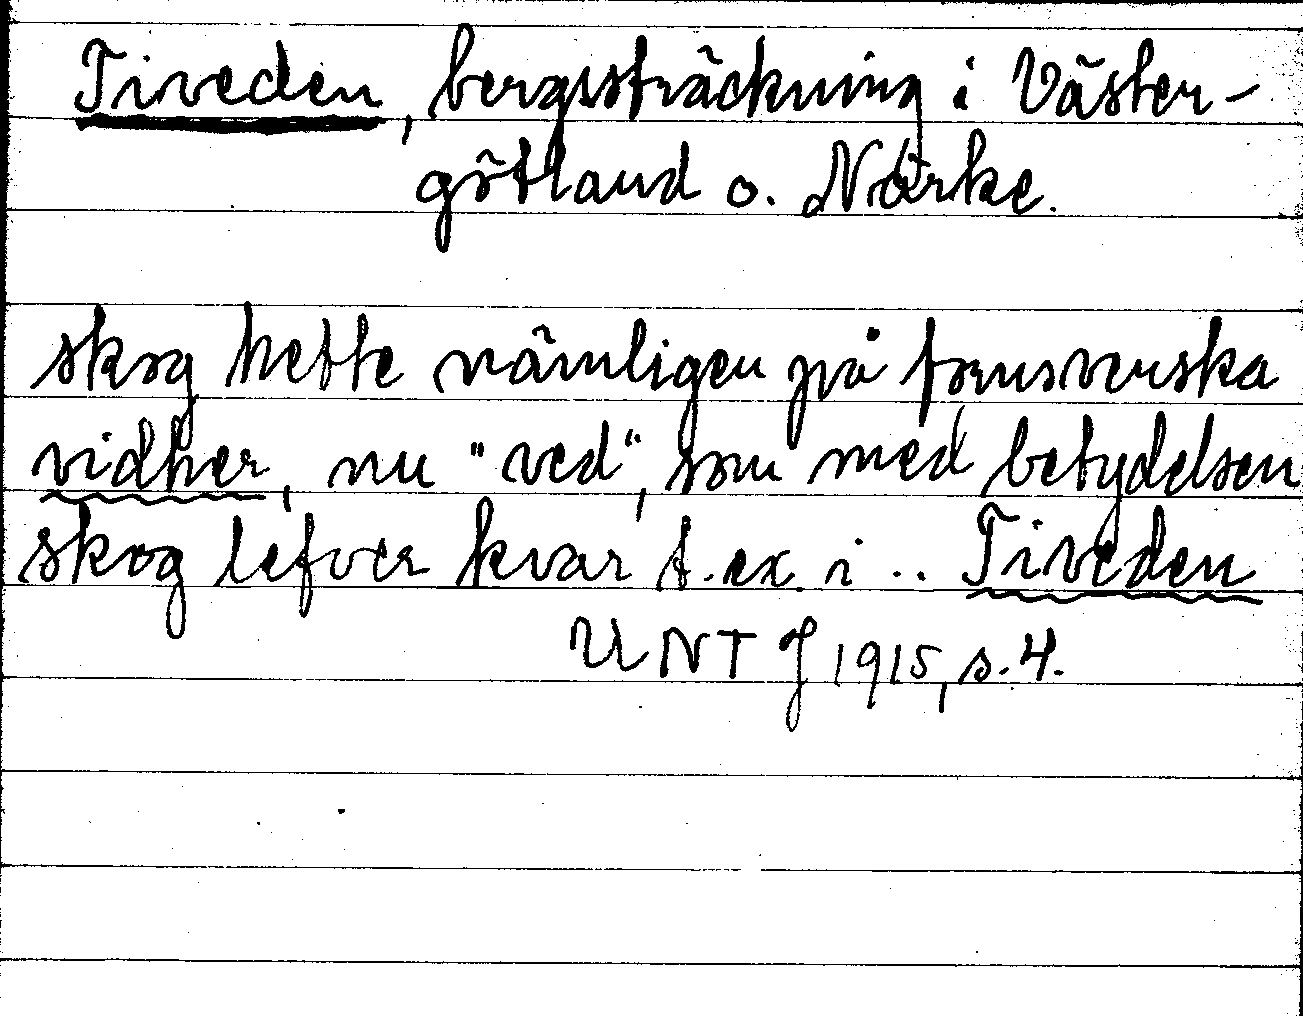 Tiveden, bergssträckning i Väster-
götland o. Närke.
skog hette nämligen på fornsvenska
vidher, nu "ved", som med betydelsen
skog lefver kvar t.ex. i .. Tiveden
UNT J 1915, s. 4.